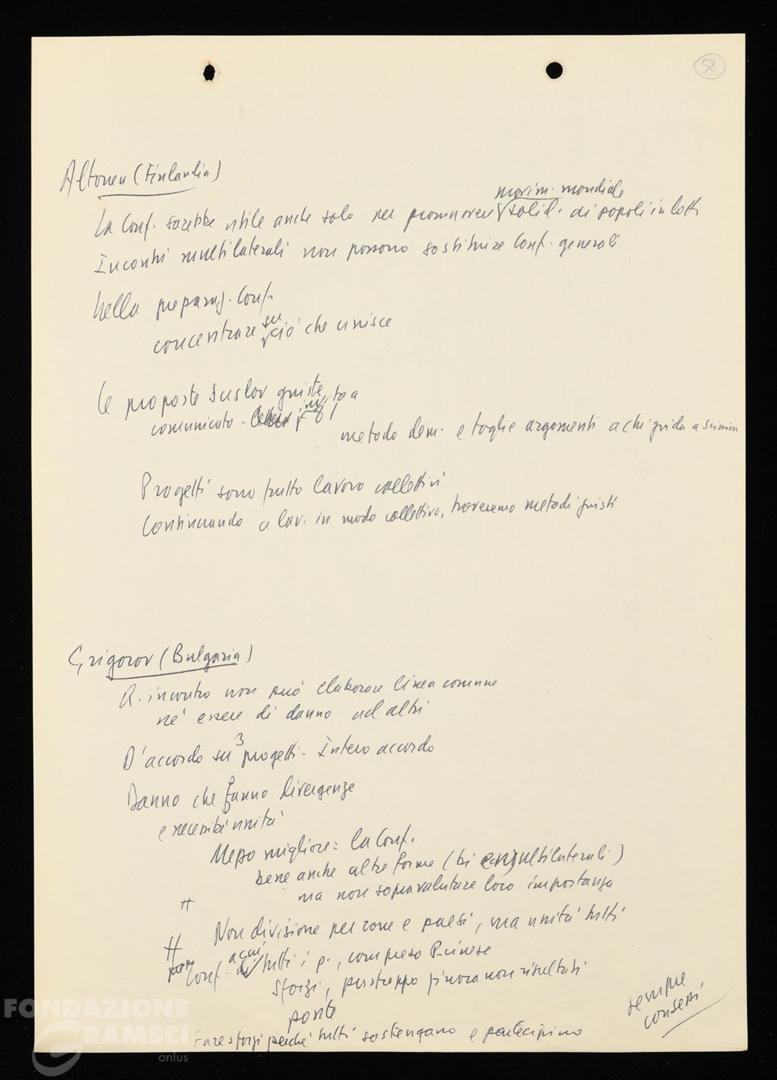 58
Altonen (Finlandia)
movim. mondiale
La Conf. sarebbe utile anche solo per promuovere solid. di popoli in lotta
Incontri multilaterali non possono sostituire Conf. generali
Nella preparaz. Conf.
concentrare su ciò che unisce
Le proposte Suslov giuste
comunicato -
metodo dem. e toglie argomenti a chi grida a
Progetti sono frutto lavoro collettivi
Continuando a lav. in modo collettivo, troveremo metodi giusti
Grigorov (Bulgaria)
Q. incontro non può elaborare linea comune
né essere di danno ad altri
D'accordo su 3 progetti - Intero accordo
Danno che fanno divergenze
e necessità unità
Mezzo migliore = la Conf.
bene anche altre forme (bi e multilaterali)
ma non sopravalutare loro importanza
Non divisione per zone e paesi, ma unità tutti
Conf. di tutti i p., compreso P. cinese
sforzi, purtroppo finora non risultati
porte
Fare sforzi perché tutti sostengano e partecipino
sempre
consensi
FONDAZIONE
GRAMSCI
onlus